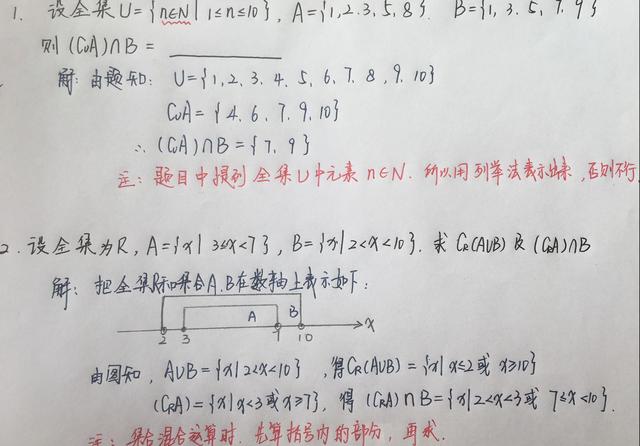 1. 设全集U={n∈N|1≤n≤10}, A={1,2.3,5,8}. B={1,3.5,7.9}
则 (CuA)∩B =
解: 由题知: U={1,2,3.4.5,6.7.8,9.10}
CuA={4.6,7.9,10}
∴ (CuA)∩B={7,9}
注: 题目中提到全集U中元素n∈N. 所以用列举法表示出来, 否则不行
2. 设全集为R, A={x|3≤x<7}, B={x|2<x<10}. 求 CR(A∪B) 及 (CRA)∩B
解: 把全集R和集合A.B在数轴上表示如下:
A B
2 3 7 10 x
由图知, A∪B={x|2<x<10}, 得CR(A∪B)={x|x≤2或x≥10}
(CRA)={x|x<3或x≥7}, 得 (CRA)∩B={x|2<x<3或 7≤x<10}.
注: 集合混合运算时. 先算括号内的部分, 再求.